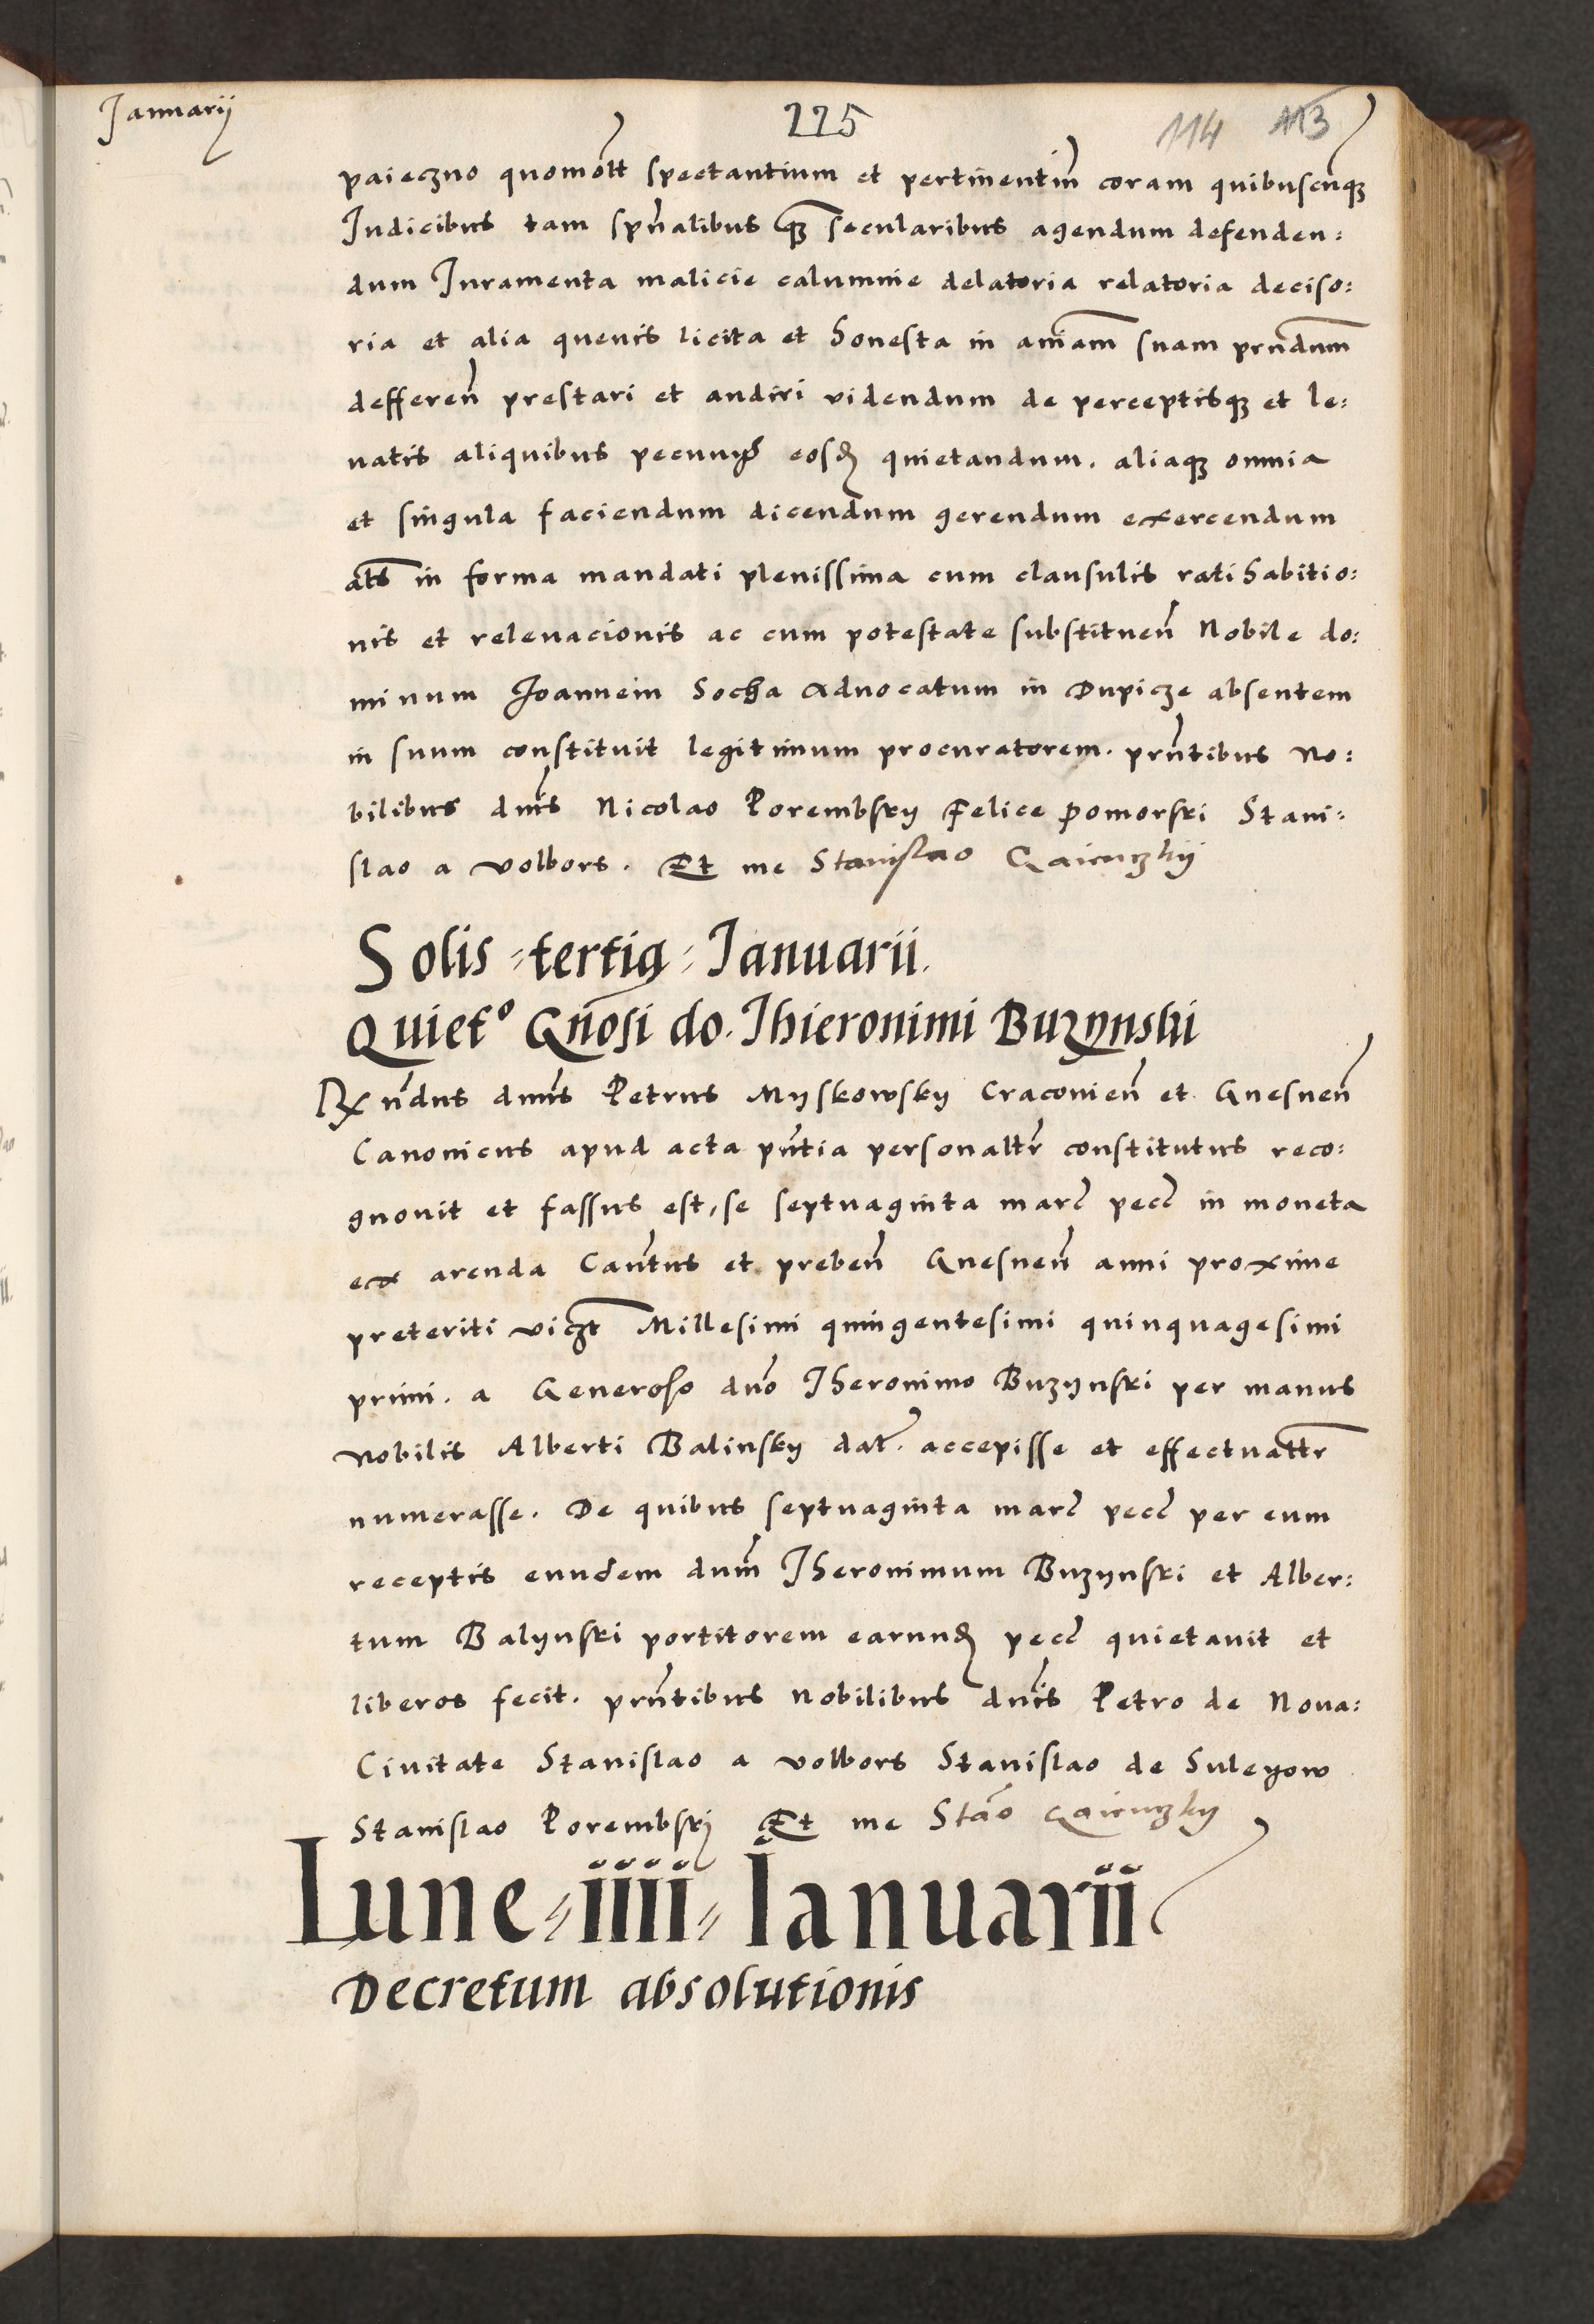 Januarij
225
114 113
paieczno quomõtt spectantium et pertinentiũ coram quibuscũqꝫ
Judicibus tam spũalibus qꝫ secularibus agendum defenden:
dum Juramenta malicie calumnie delatoria relatoria deciso:
ria et alia quevis licita et honesta in aniam suam prñdum
defferen̄ prestari et audiri videndum de perceptisqꝫ et le:
vatis aliquibus pecunijs eosd quietandum. aliaqꝫ omnia
et singula faciendum dicendum gerendum exercendum
ats in forma mandati plenissima cum clausulis ratihabitio:
nis et relevacionis ac cum potestate substituen̄ Nobile do:
minum Joannem Socha Advocatum in Dupicze absentem
in suum constituit legitimum procuratorem. prñtibus No:
bilibus dnis Nicolao Porembsky Felice Pomorski Stani:
slao a volbors. Et me Stanislao
Solis tertia Januarii.
Quiet° Gñosi do. Jhieronimi Buzynski
Rx ñdus dnus Petrus Myskowsky Cracovien̄ et Gnesnen̄
Canonicus apud acta pñtia personaltr constitutus reco:
gnovit et fassus est, se septuaginta marc pecc in moneta
ex arenda Cantus et preben̄ Gnesnen̄ anni proxime
preteriti viczt Millesimi quingentesimi quinquagesimi
primi. a Generoso dno Jheronimo Buzynski per manus
Nobilis Alberti Balinsky dat. accepisse et effectualtr
numerasse. De quibus septuaginta marc pecc per eum
receptis eundem dnum Jheronimum Buzynski et Alber:
tum Balynski portitorem earund pecc quietavit et
liberos fecit. prñtibus Nobilibus dnis Petro de Nova:
Civitate Stanislao a volbors Stanislao de Suleyow
Stanislao Porembskj Et me Stão
Lune iiii Januarii
Decretum absolutionis